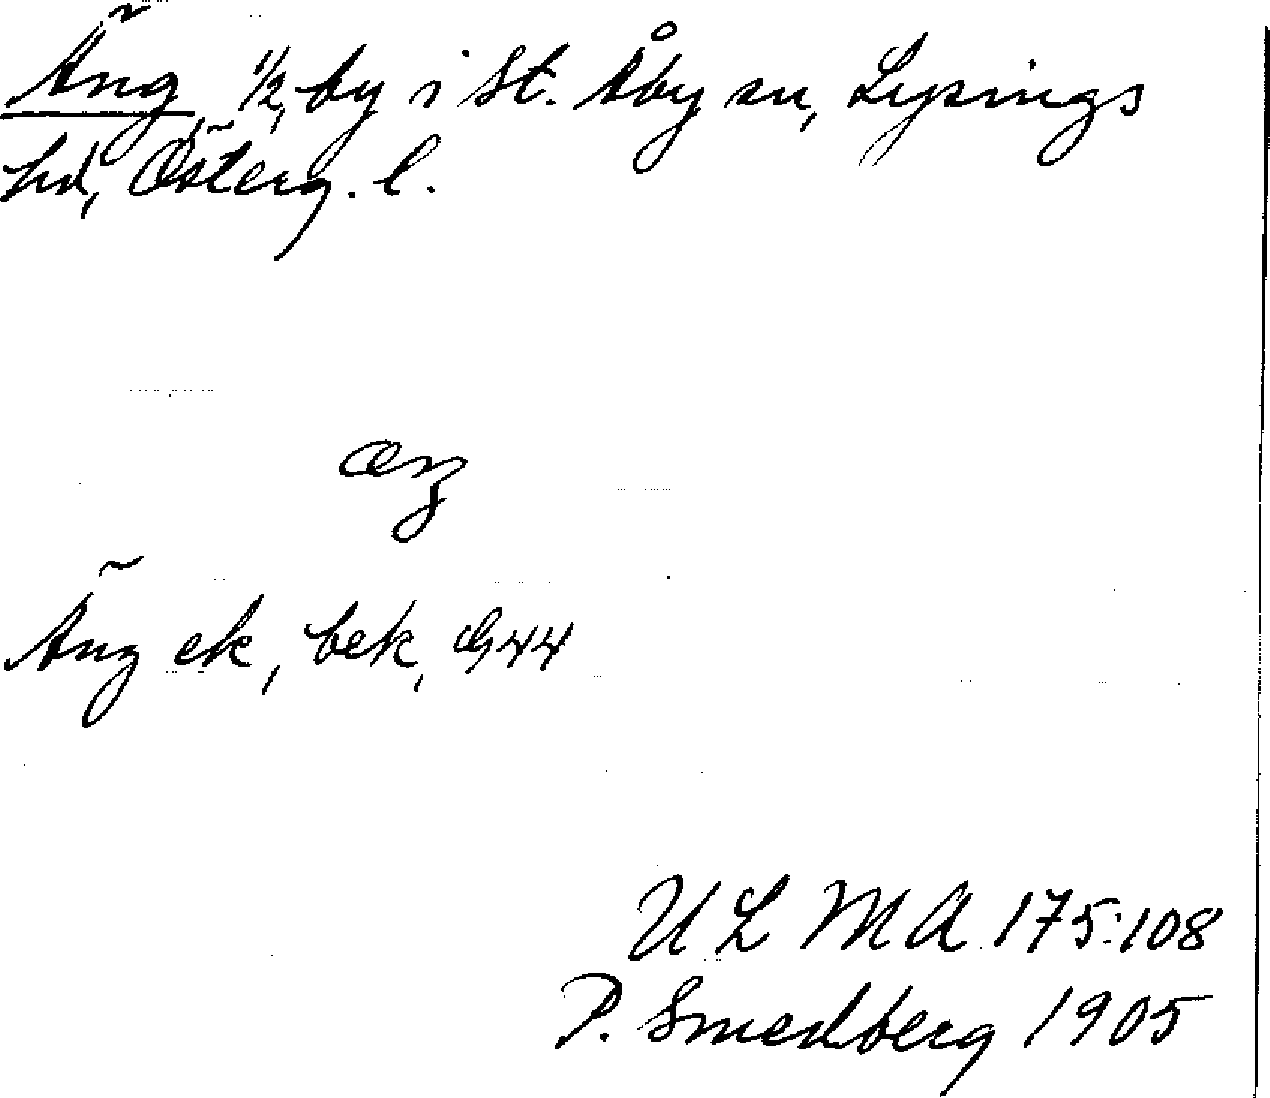 Äng, 1/2, by i St. Åby sn, Lysings
hd, Österg. l.
æŋ
Äng ek, bek, G44
ULMA 175:108
P. Smedberg 1905